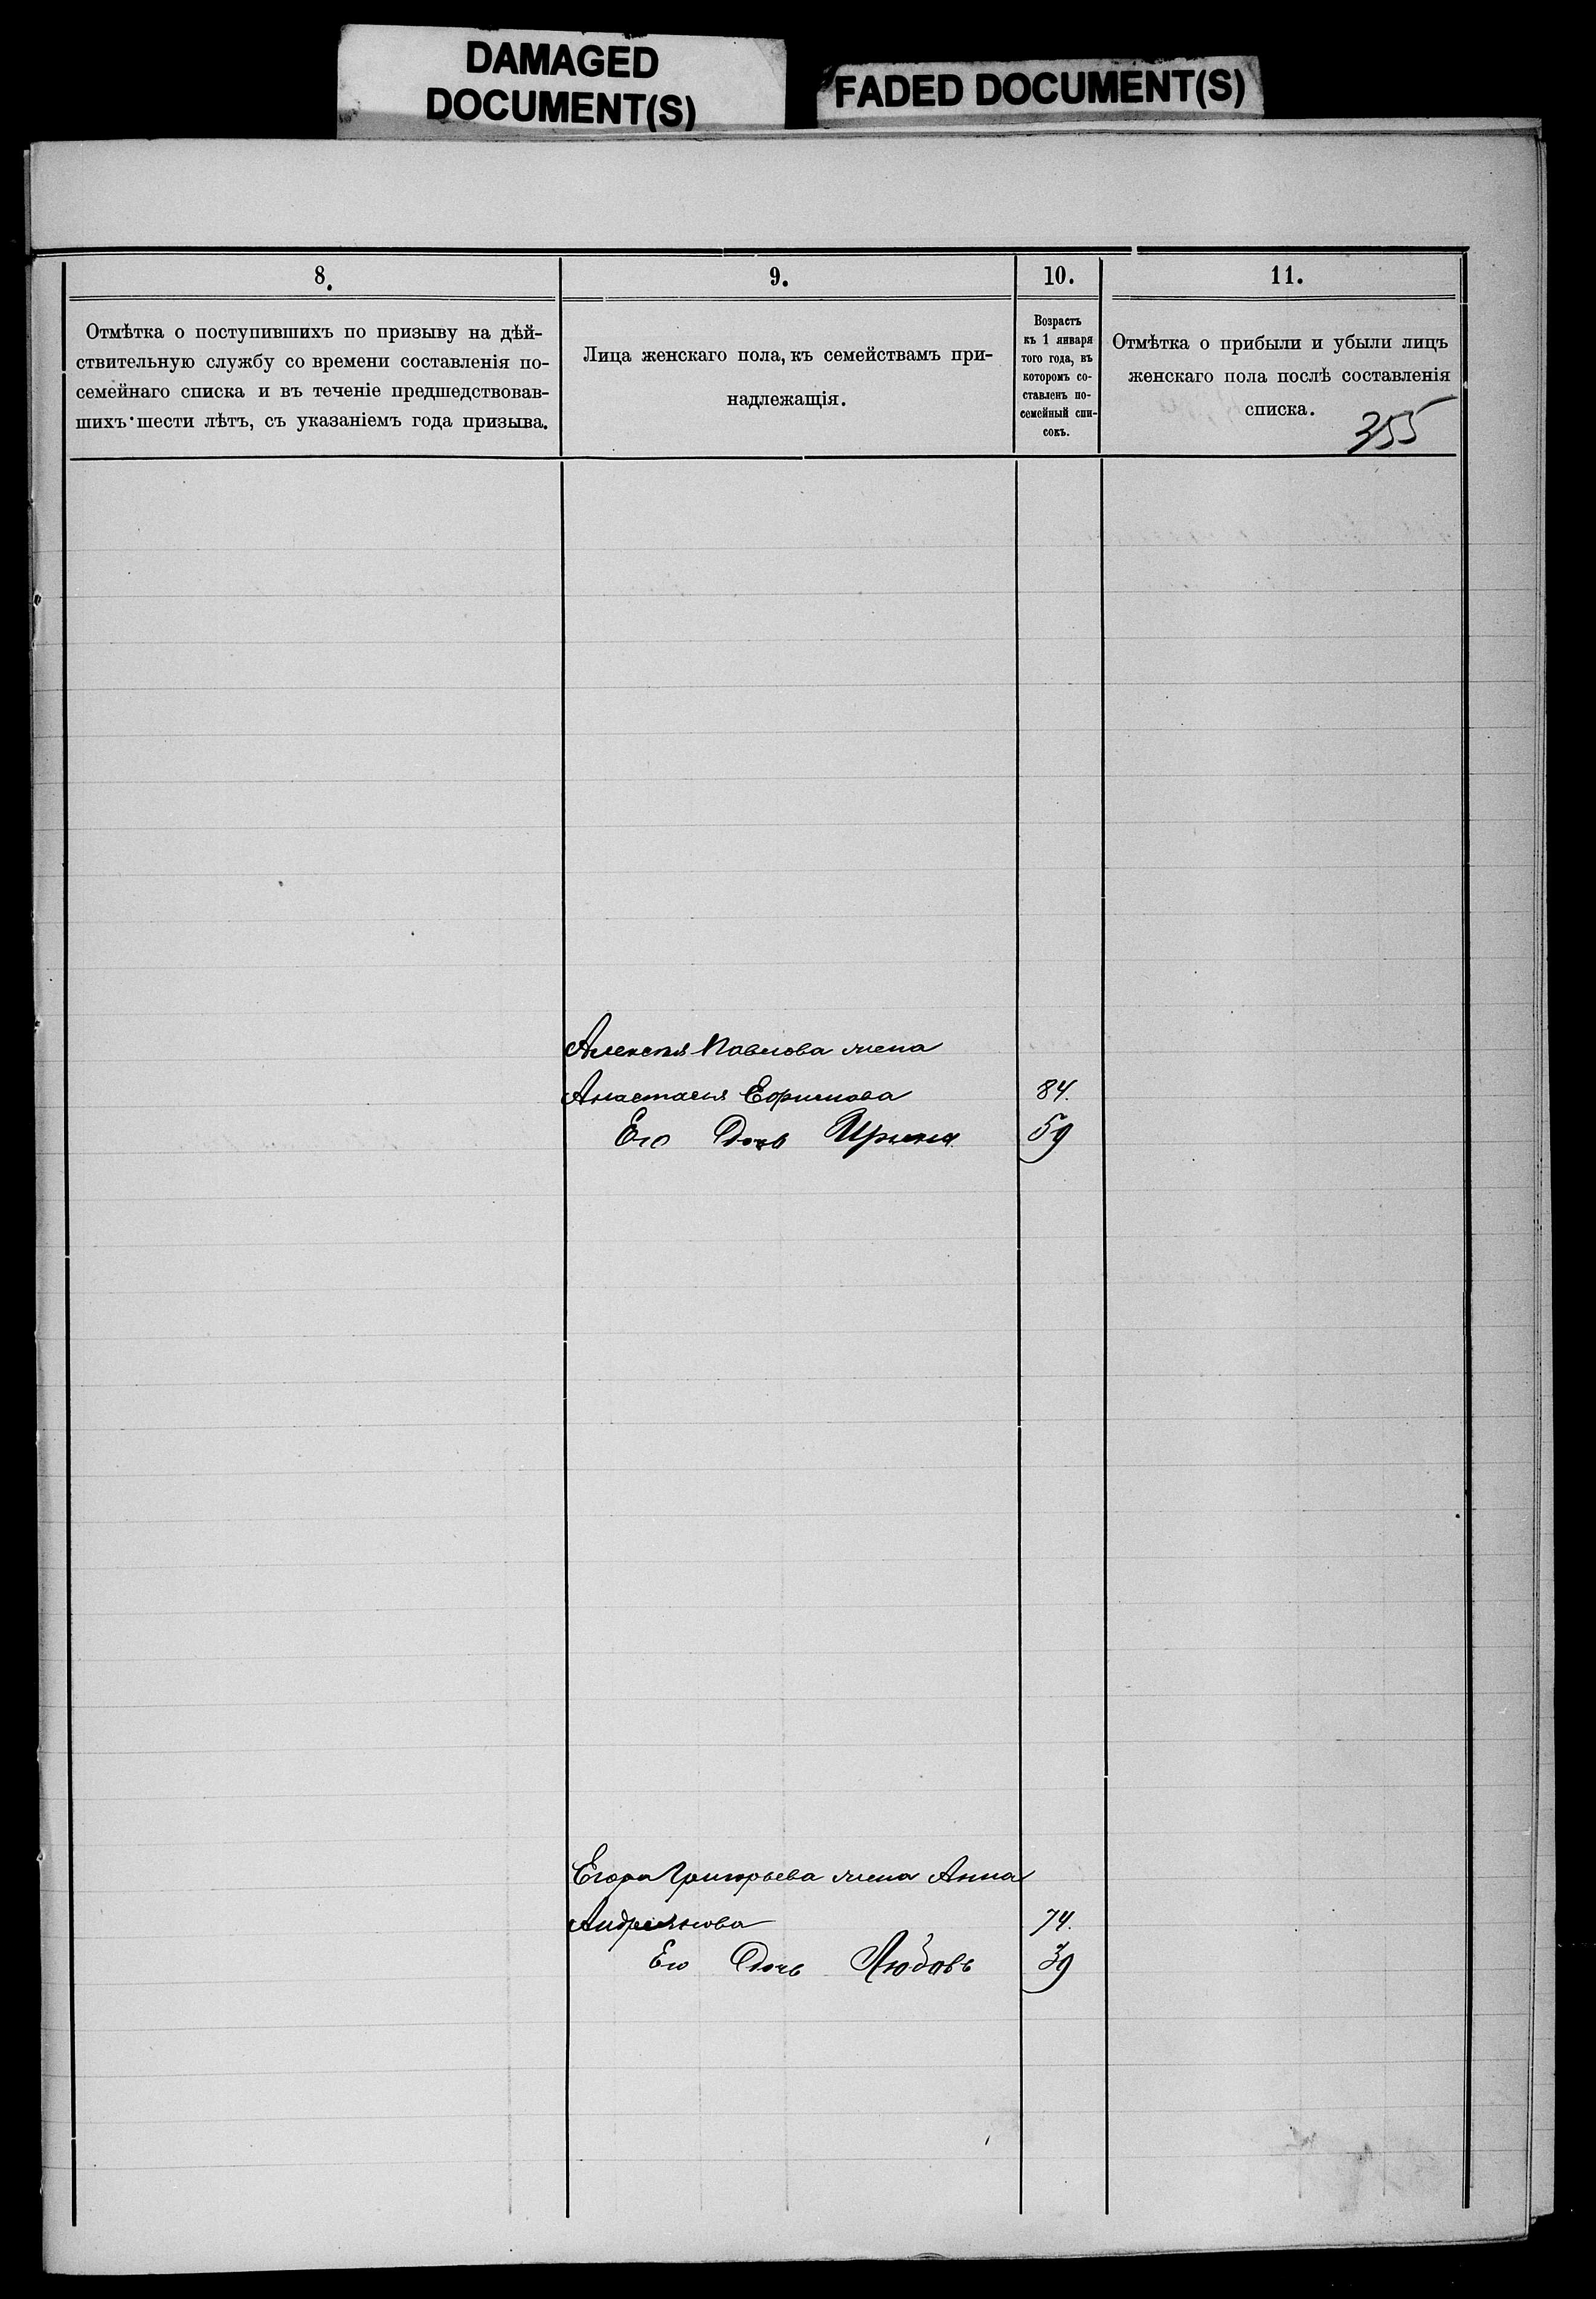 DAMAGED
DOCUMENT(S)
FADED DOCUMENT(S)
8.
9.
10.
11.
Отмѣтка о поступившихъ по призыву на дѣй-
ствительную службу со времени составленія по-
семейнаго списка и въ теченіе предшедствовав-
шихъ шести лѣтъ, съ указаніемъ года призыва.
Лица женскаго пола, къ семействамъ при-
надлежащія.
Возрастъ
къ 1 января
того года, въ
которомъ со-
ставленъ по-
семейный спи-
сокъ.
Отмѣтка о прибыли и убыли лицъ
женскаго пола послѣ составленія
списка.
355
Алексѣя Павлова жена
Анастасья Ефимова 84.
Его Дочь Ирина 59
Егора Григорьева жена Анна
Андреянова 74.
Его Дочь Любовь 39